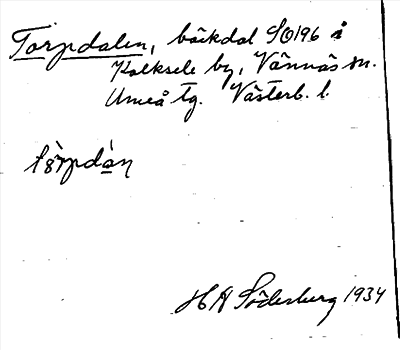 Torpdalen, bäckdal SO196 å
Kolksele by, Vännäs sn.
Umeå tg. Västerb. l.
H A Söderburg 1934